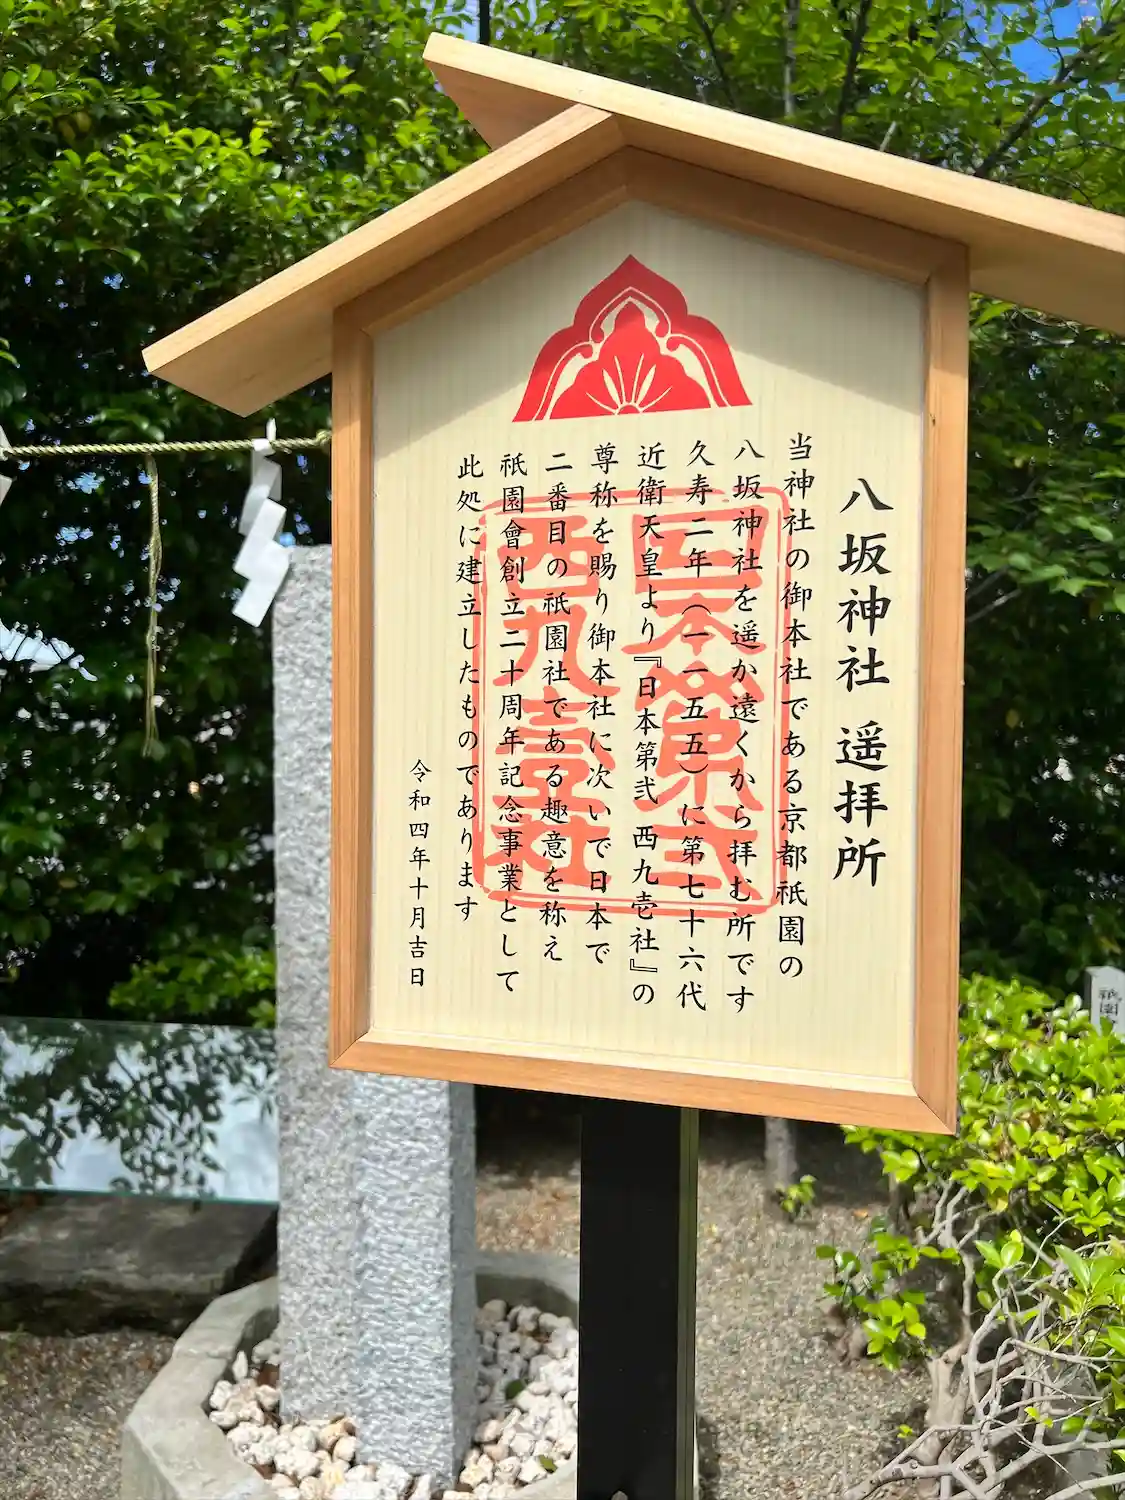 八坂神社 遥拝所
当神社の御本社である京都祇園の
八坂神社を遥か遠くから拝む所です
久寿二年(一一五五)に第七十六代
近衛天皇より『日本第弐 西九壱社』の
尊称を賜り御本社に次いで日本で
二番目の祇園社である趣意を称え
祇園會創立二十周年記念事業として
此処に建立したものであります
令和四年十月吉日
日本第弐
西九壹社
祇園